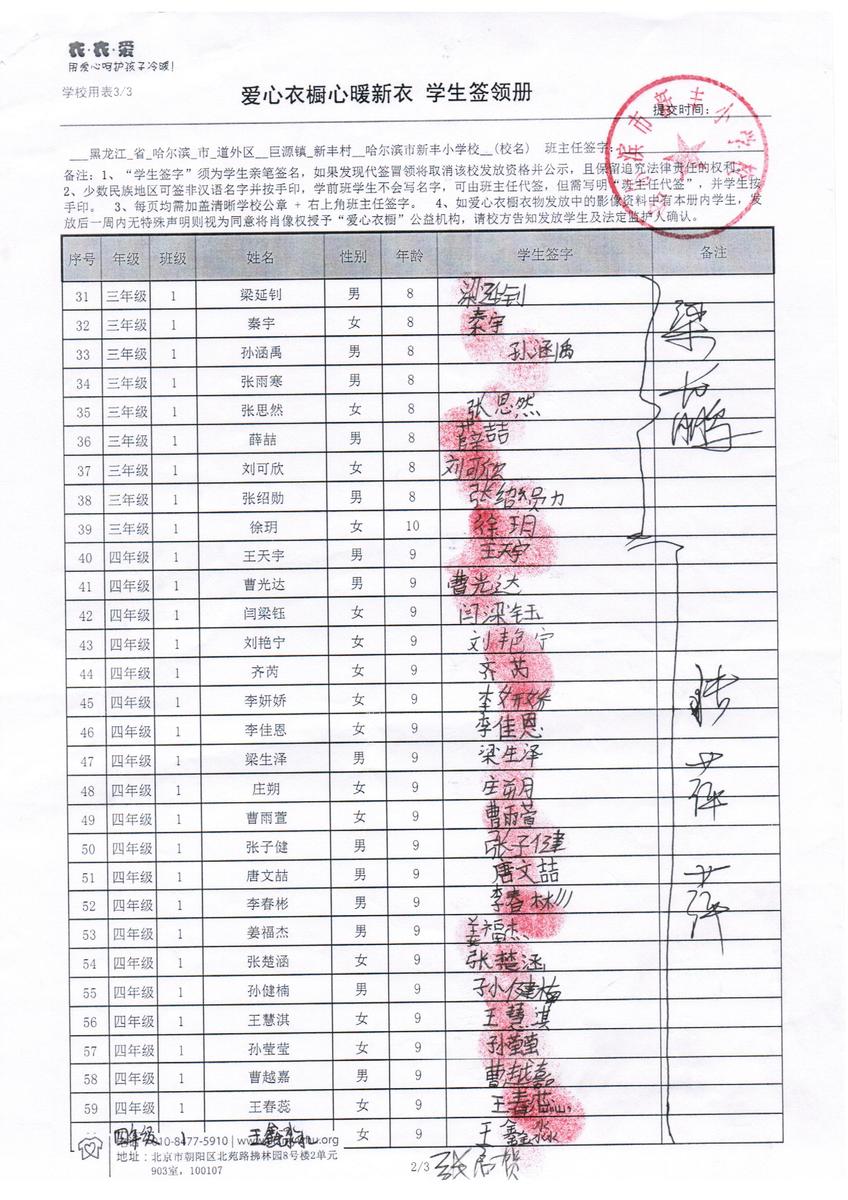 衣·衣·爱
用爱心呵护孩子冷暖!
学校用表3/3
爱心衣橱心暖新衣 学生签领册
提交时间:
市新丰小学校
___黑龙江_省_哈尔滨_市_道外区__巨源镇_新丰村__哈尔滨市新丰小学校__(校名) 班主任签字:
备注: 1、“学生签字”须为学生亲笔签名, 如果发现代签冒领将取消该校发放资格并公示, 且保留追究法律责任的权利。
2、少数民族地区可签非汉语名字并按手印, 学前班学生不会写名字, 可由班主任代签, 但需写明“班主任代签”, 并学生按
手印。 3、每页均需加盖清晰学校公章 + 右上角班主任签字。 4、如爱心衣橱衣物发放中的影像资料中有本册内学生, 发
放后一周内无特殊声明则视为同意将肖像权授予“爱心衣橱”公益机构, 请校方告知发放学生及法定监护人确认。
序号 年级 班级 姓名 性别 年龄 学生签字 备注
31 三年级 1 梁延钊 男 8 梁延钊
32 三年级 1 秦宇 女 8 秦宇
33 三年级 1 孙涵禹 男 8 孙涵禹
34 三年级 1 张雨寒 男 8
35 三年级 1 张思然 女 8 张思然
36 三年级 1 薛喆 男 8 薛喆
37 三年级 1 刘可欣 女 8 刘可欣
38 三年级 1 张绍勋 男 8 张绍勋
39 三年级 1 徐玥 女 10 徐玥
40 四年级 1 王天宇 男 9 王天宇
41 四年级 1 曹光达 男 9 曹光达
42 四年级 1 闫梁钰 女 9 闫梁钰
43 四年级 1 刘艳宁 女 9 刘艳宁
44 四年级 1 齐芮 女 9 齐芮
45 四年级 1 李妍娇 女 9 李妍娇
46 四年级 1 李佳恩 女 9 李佳恩
47 四年级 1 梁生泽 男 9 梁生泽
48 四年级 1 庄朔 女 9 庄朔
49 四年级 1 曹雨萱 女 9 曹雨萱
50 四年级 1 张子健 男 9 张子健
51 四年级 1 唐文喆 男 9 唐文喆
52 四年级 1 李春彬 男 9 李春彬
53 四年级 1 姜福杰 男 9 姜福杰
54 四年级 1 张楚涵 女 9 张楚涵
55 四年级 1 孙健楠 男 9 孙健楠
56 四年级 1 王慧淇 女 9 王慧淇
57 四年级 1 孙莹莹 女 9 孙莹莹
58 四年级 1 曹越嘉 男 9 曹越嘉
59 四年级 1 王春蕊 女 9 王春蕊
四年级 1 王鑫淼 女 9 王鑫淼
010-8477-5910 |
地址: 北京市朝阳区北苑路拂林园8号楼2单元
903室, 100107
2/3